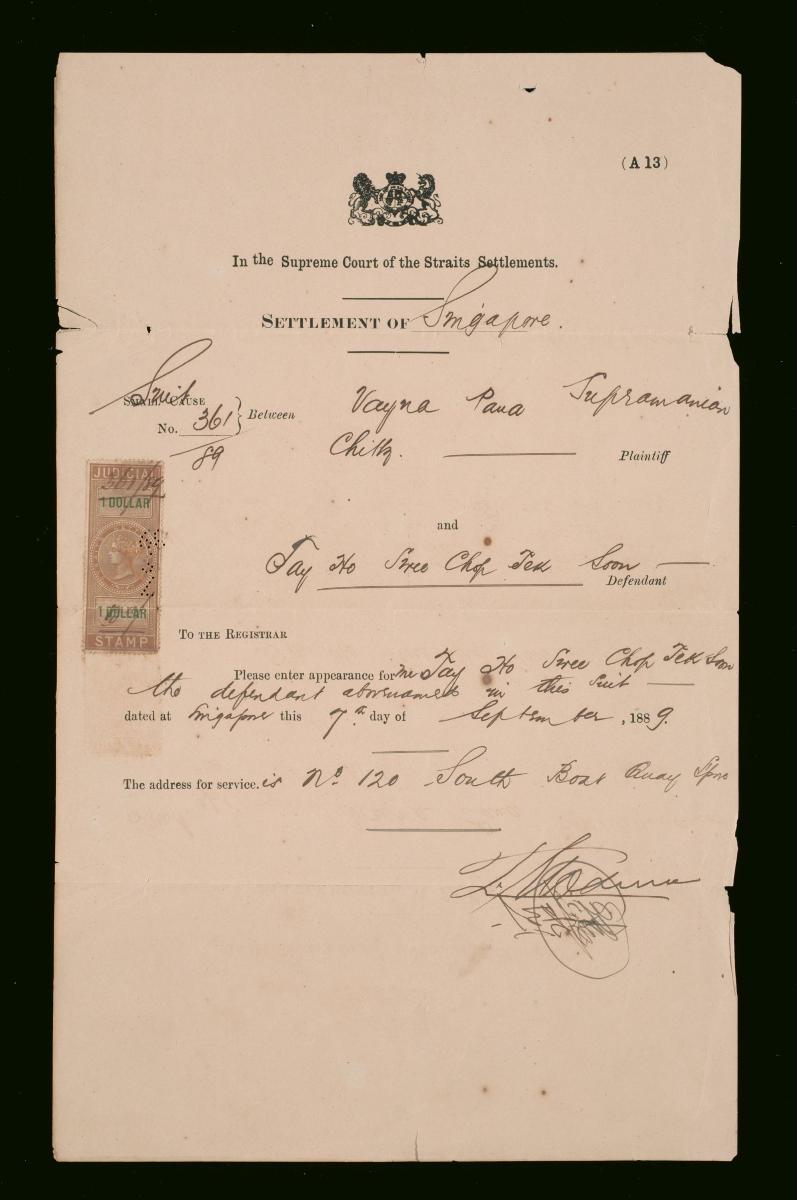 (A 13)
In the Supreme Court of the Straits Settlements.
SETTLEMENT OF Singapore.
Suit
SMALL CAUSE
No. 361/89 } Between Vayna Pana Supramanian
Chitty. Plaintiff
JUDICIAL
361/89
1 DOLLAR
and
Tay Ho Swee Chop Tek Soon
Defendant
1 DOLLAR
STAMP
TO THE REGISTRAR
Please enter appearance for me Tay Ho Swee Chop Tek Soon
the defendant abovenamed in this Suit
dated at Singapore this 7th day of September, 1889.
The address for service is No. 120 South Boat Quay Spore